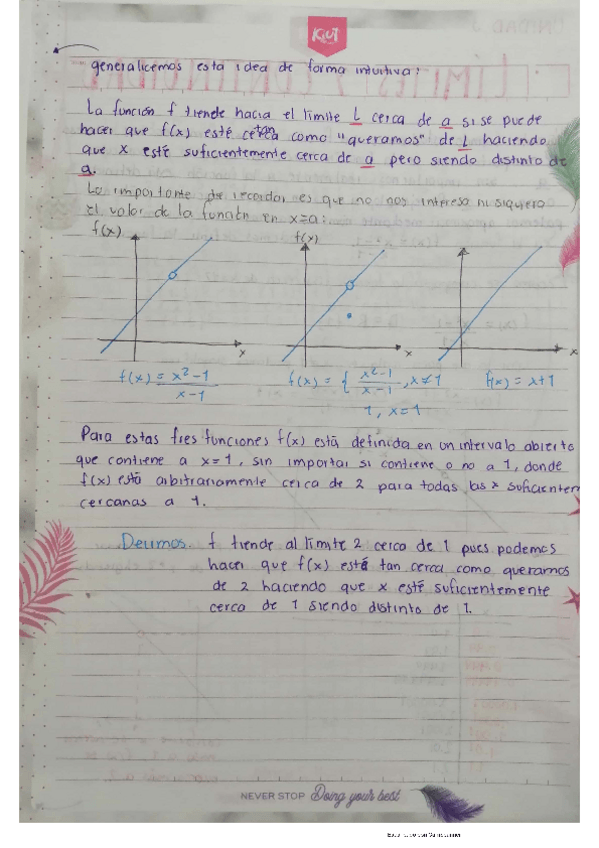 KUT
generalicemos esta idea de forma intuitiva:
La función f tiende hacia el límite L cerca de a si se puede
hacer que f(x) esté tan cerca como "queramos" de L haciendo
que x esté suficientemente cerca de a pero siendo distinto de
a.
Lo importante de recordar es que no nos interesa ni siquiera
el valor de la función en x=a:
f(x) f(x)
x x x
f(x) = x²-1 / x-1 f(x) = { x²-1 / x-1 , x≠1 f(x) = x+1
1, x=1
Para estas tres funciones f(x) está definida en un intervalo abierto
que contiene a x=1, sin importar si contiene o no a 1, donde
f(x) está arbitrariamente cerca de 2 para todas las x suficientem
cercanas a 1.
Decimos. f tiende al límite 2 cerca de 1 pues podemos
hacer que f(x) está tan cerca como queramos
de 2 haciendo que x esté suficientemente
cerca de 1 siendo distinto de 1.
NEVER STOP Doing your best